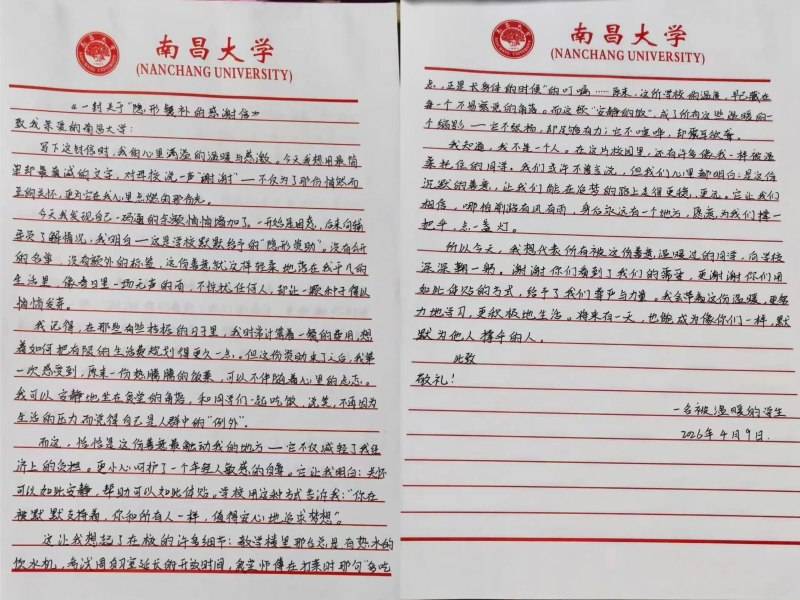 南昌大学
(NANCHANG UNIVERSITY)
《一封关于"隐形餐补的感谢信》
致我亲爱的南昌大学:
写下这封信时,我的心里满溢的温暖与感激。今天我想用最简
单却最真诚的文字,对母校说一声"谢谢"——不仅为了那份悄然而
至的关怀,更为它在我心里点燃的那份光。
今天我发现自己一码通的余额悄悄增加了。一开始是困惑,后来向辅
导员了解情况,我明白——这是学校默默给予的"隐形资助"。没有公开
的名单,没有额外的标签,这份善意就这样轻柔地落在我平凡的
生活里,像春日里一场无声的雨,不惊扰任何人,却让一颗种子得以
悄悄发芽。
我记得,在那些有些拮据的日子里,我时常计算着一餐的费用,想
着如何把有限的生活费规划得更久一点。但这份资助来了之后,我第
一次感受到,原来一份热腾腾的饭菜,可以不伴随着心里的忐忑。
我可以安静地坐在食堂的角落,和同学们一起吃饭、说笑,不再因为
生活的压力而觉得自己是人群中的"例外"。
而这,恰恰是这份善意最触动我的地方——它不仅减轻了我经
济上的负担,更小心呵护了一个年轻人敏感的自尊。它让我明白:关怀
可以如此安静,帮助可以如此体贴。学校用这种方式告诉我:"你在
被默默支持着,你和所有人一样,值得安心地追求梦想"。
这让我想起了在校的许多细节:教学楼里那台总是有热水的
饮水机,考试周自习室延长的开放时间,食堂师傅在打菜时那句"多吃
南昌大学
(NANCHANG UNIVERSITY)
点,正是长身体的时候"的叮嘱……原来,这所学校的温度,早已藏在
每一个不易察觉的角落。而这顿"安静的饭",成了所有这些温暖的一
个缩影——它不张扬,却足够有力;它不喧哗,却震耳欲聋。
我知道,我不是一个人。在这片校园里,还有许多像我一样被温
柔托住的同学。我们或许不善言谈,但我们心里都明白:是这份
沉默的善意,让我们能在追梦的路上走得更稳、更远。它让我们
相信,哪怕前路有风有雨,身后永远有一个地方,愿意为我们撑一
把伞,点一盏灯。
所以今天,我想代表所有被这份善意温暖过的同学,向学校
深深鞠一躬。谢谢你们看到了我们的需要,更谢谢你们用
如此体贴的方式,给予了我们尊严与力量。我会带着这份温暖,更努
力地学习,更积极地生活。将来有一天,也能成为像你们一样,默
默为他人撑伞的人。
此致
敬礼!
一名被温暖的学生
2026年4月9日.